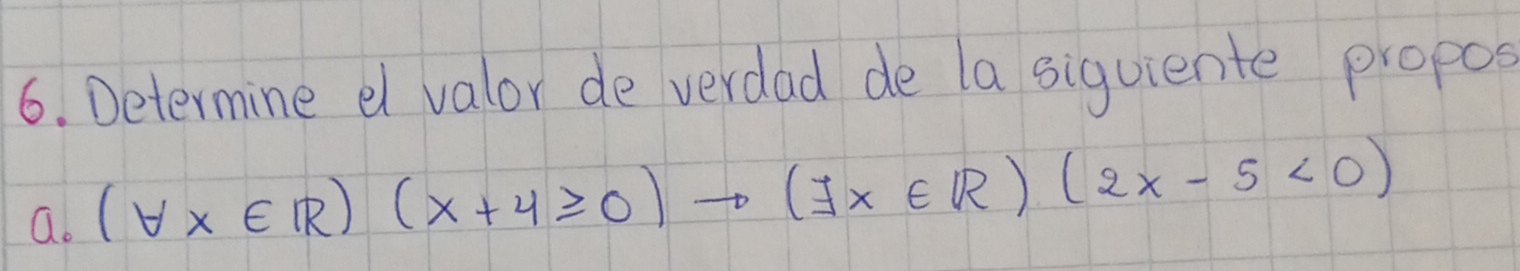 6. Determine el valor de verdad de la siguiente propos
a. (∀x ∈ ℝ) (x + 4 ≥ 0) → (∃x ∈ ℝ) (2x - 5 < 0)